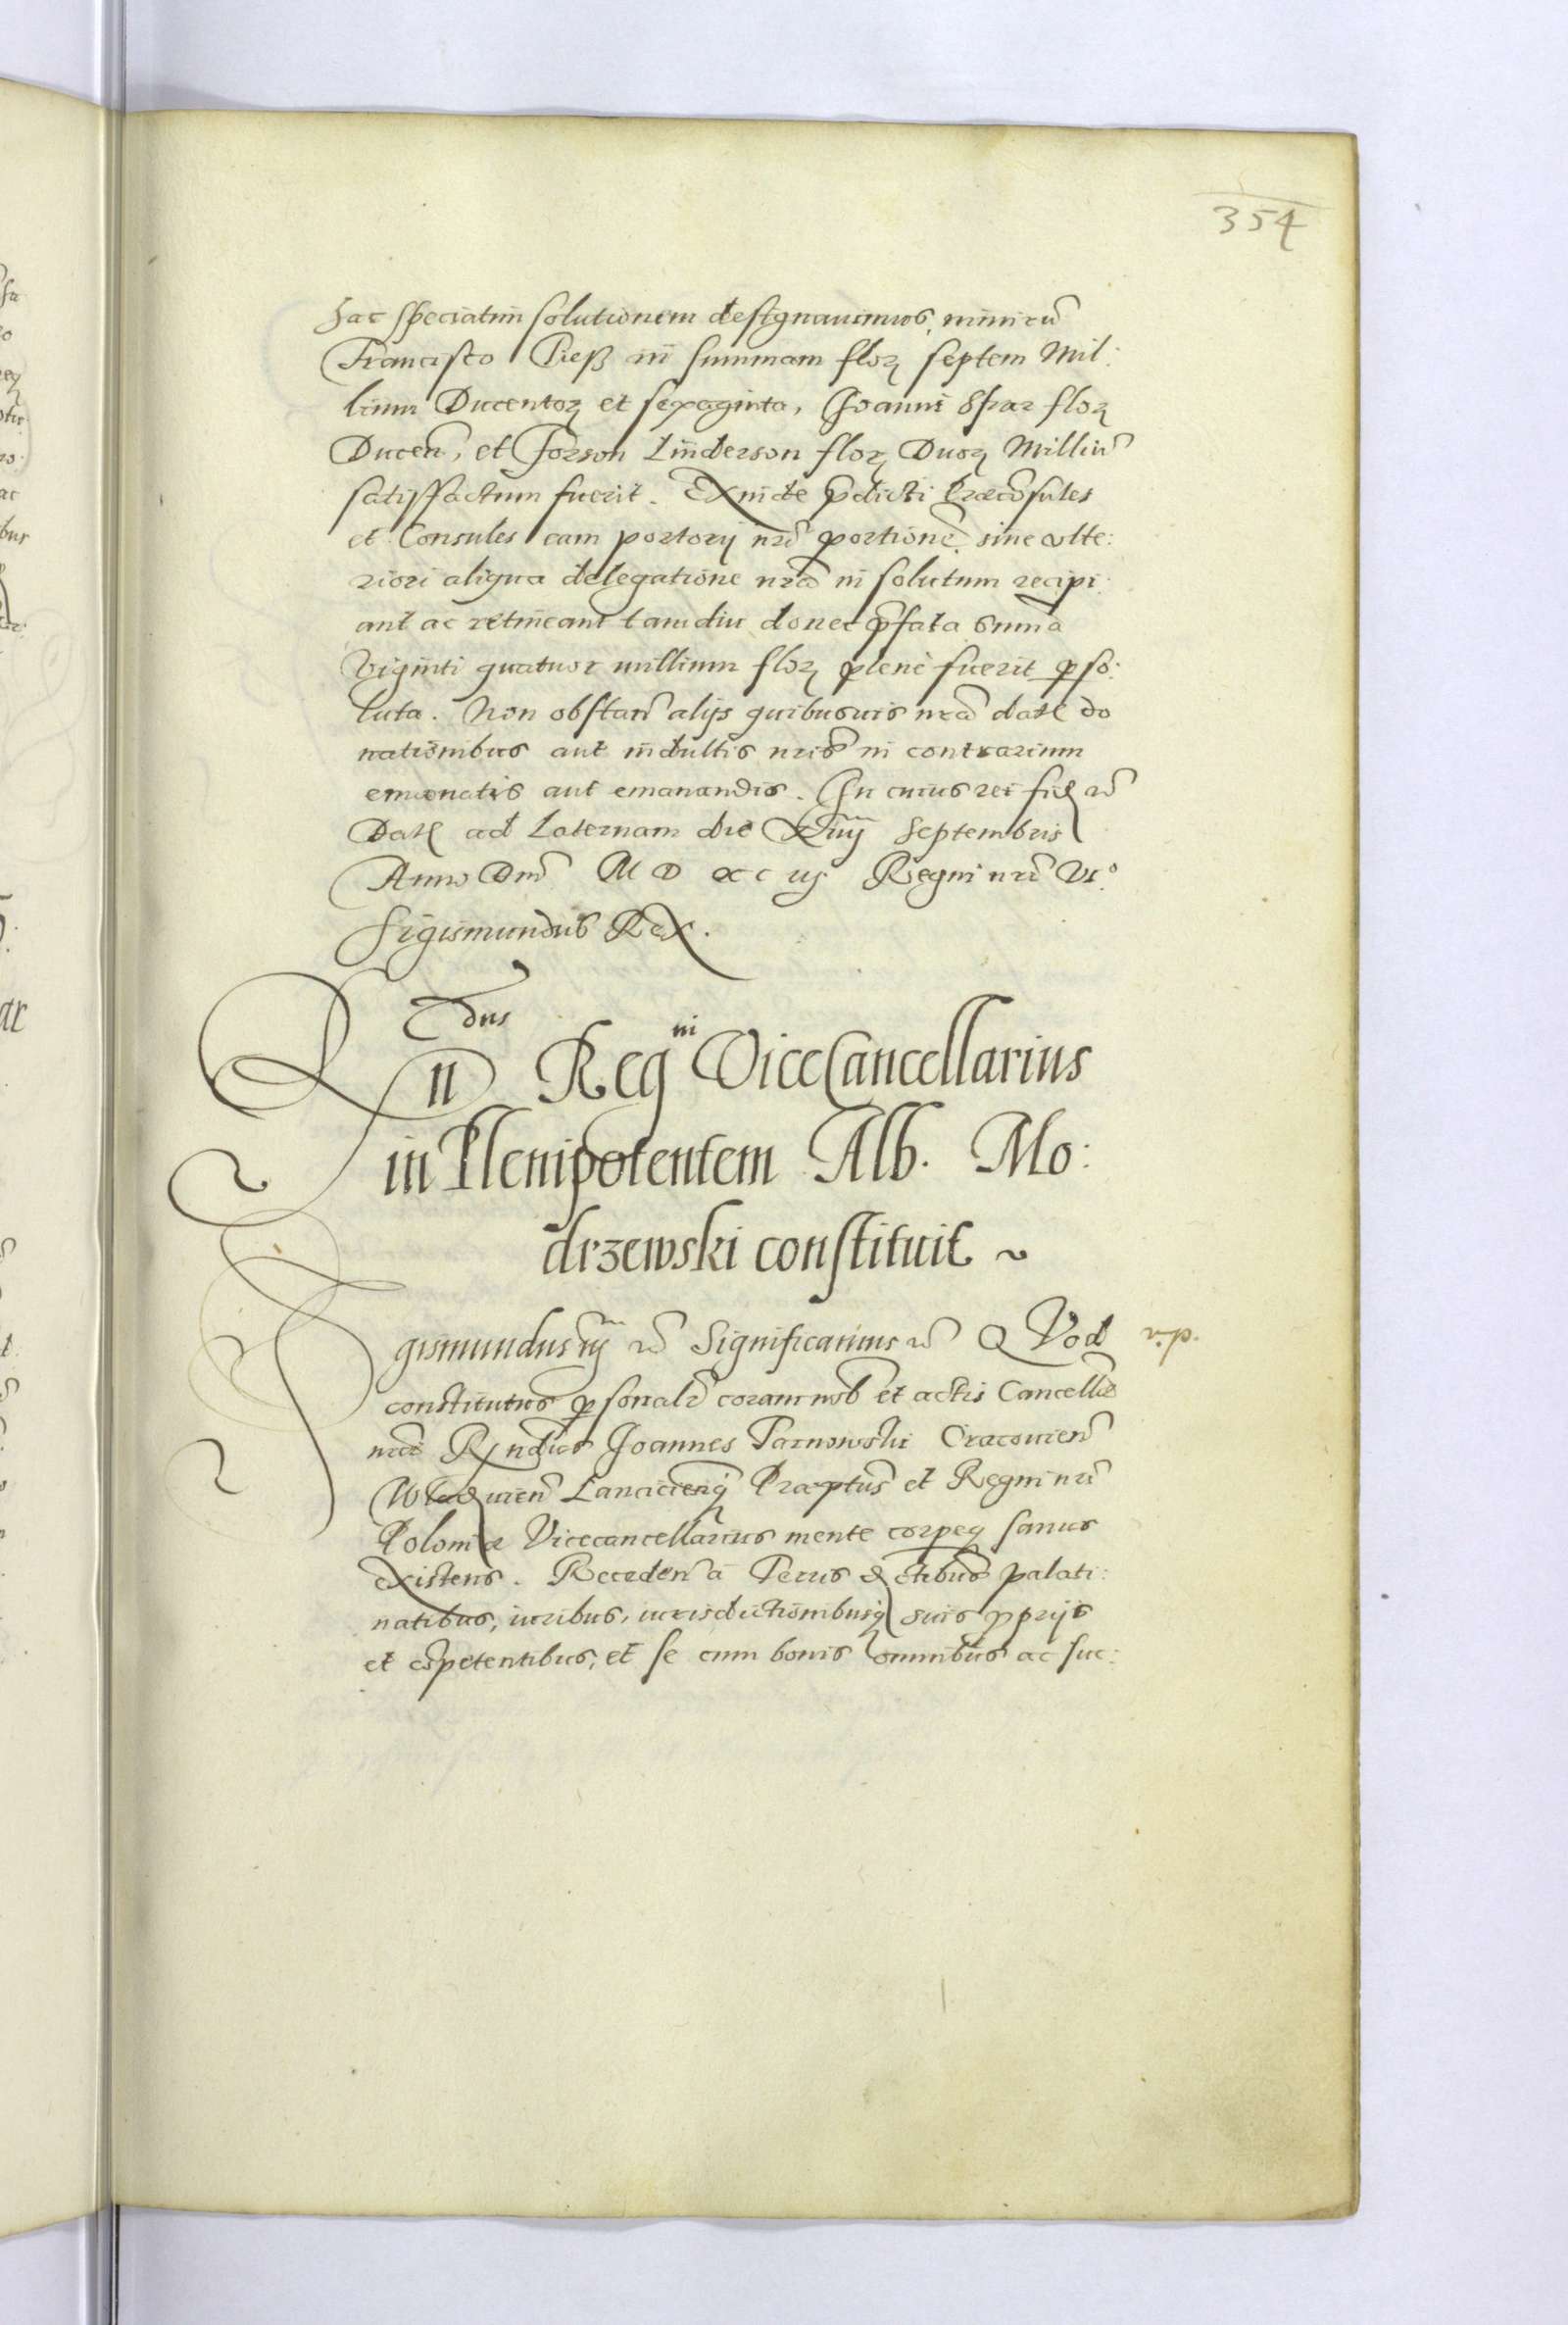 354
hac speciatim solutionem designauimus, nimirũ
Francisco Pieß in summam floꝝ septem Mil:
lium Ducentoꝝ et sexaginta, Joanni Spar floꝝ
Ducen̄, et Jorson Linderson floꝝ Duoꝝ Milliũ
satisfactum fuerit. Exinde p̄dicti Præcōsules
et Consules eam portorij nr̄i portionē sine vlte:
riori aliqua delegatione nr̄a in solutum recipi:
ant ac retineant tam diu donec p̄fata sum̄a
Viginti quatuor millium floꝝ plenè fuerit ꝑso:
luta. Non obstan̄ alijs quibusuis nr̄a dat do
nationibus aut indultis nr̄is in contrarium
emanatis aut emanandis. In cuius rei fid
Dat ad Laternam die Septembris
Anno Dnī M D XC iij Regni nr̄i VI°
Sigismundus Rex.
R dus
n Regni ViceCancellarius
in Plenipotentem Alb. Mo:
drzewski constituit ~
Sigismundus iij Significamus QVod v.p.
constitutus ꝑsonalr̄ coram nob̄ et actis Cancellæ
nr̄æ Rndus Joannes Tarnowski Cracouien̄
Wladislauien̄ Lancicien̄qꝫ Præptus et Regni nr̄i
Poloniæ Vicecancellarius mente corpeqꝫ sanus
existens. Receden̄ à Terris dictibus palati:
natibus, iuribus, iurisdictionibusqꝫ suis pprijs
et cōpetentibus, et se cum bonis omnibus ac suc: